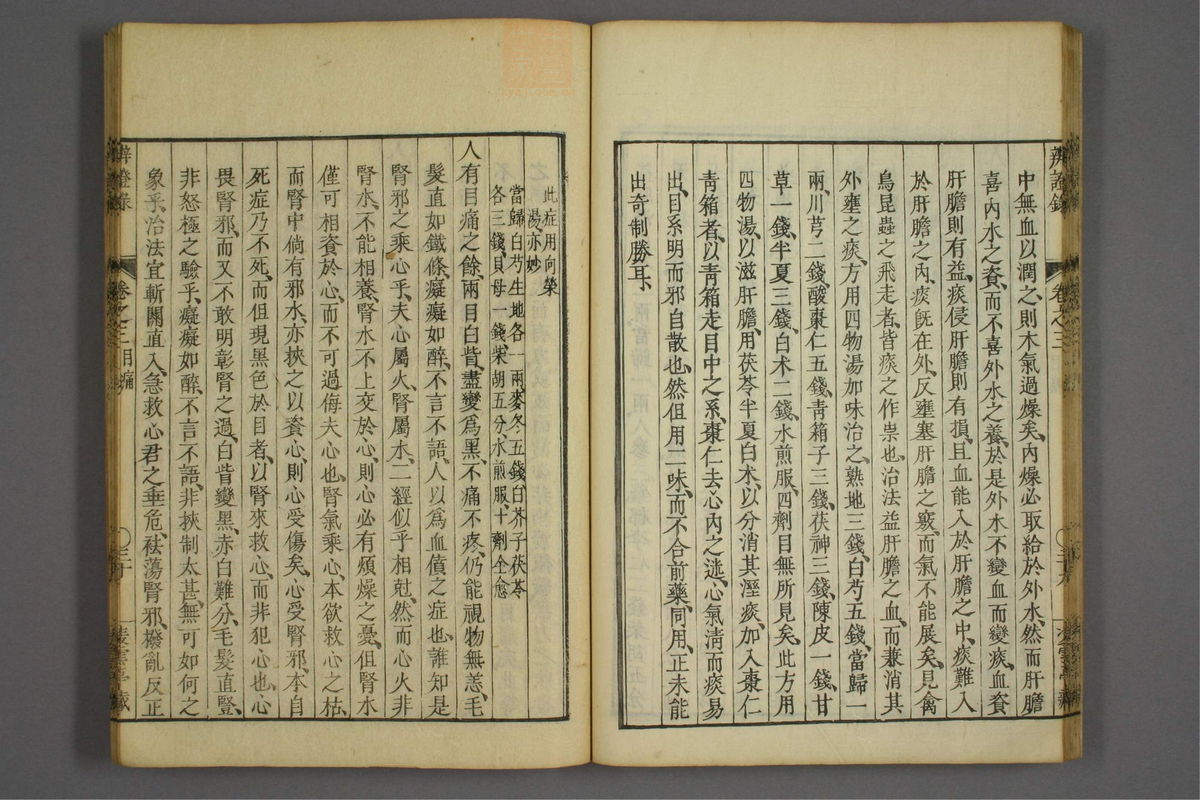 中無血以潤之、則木氣過燥矣、內燥必取給於外水、然而肝膽
喜內水之資、而不喜外水之養、於是外水不變血而變痰、血資
肝膽則有益、痰侵肝膽則有損、且血能入於肝膽之中、痰難入
於肝膽之內、痰旣在外、反壅塞肝膽之竅、而氣不能展矣、見禽
鳥昆蟲之飛走者、皆痰之作祟也、治法益肝膽之血、而兼消其
外壅之痰、方用四物湯加味治之、熟地三錢、白芍五錢、當歸一
兩、川芎二錢、酸棗仁五錢、靑箱子三錢、茯神三錢、陳皮一錢、甘
草一錢、半夏三錢、白术二錢、水煎服、四劑目無所見矣、此方用
四物湯、以滋肝膽、用茯苓半夏白术、以分消其溼痰、加入棗仁
靑箱者、以靑箱走目中之系、棗仁去心內之迷、心氣淸而痰易
出、目系明而邪自散也、然但用二味、而不合前藥、同用、正未能
出奇制勝耳、
辨證錄 卷之三
此症用向榮
湯、亦妙、
當歸白芍生地各一兩、麥冬五錢、白芥子茯苓
各三錢、貝母一錢、柴胡五分、水煎服、十劑全愈
人有目痛之餘、兩目白眥、盡變爲黑、不痛不疼、仍能視物無恙、毛
髮直如鐵條、癡癡如醉、不言不語、人以爲血僨之症也、誰知是
腎邪之乘心乎、夫心屬火、腎屬水、二經似乎相尅、然而心火非
腎水、不能相養、腎水不上交於心、則心必有煩燥之憂、但腎水
僅可相資於心、而不可過侮夫心也、腎氣乘心、本欲救心之枯、
而腎中倘有邪水、亦挾之以資心、則心受傷矣、心受腎邪、本自
死症、乃不死、而但現黑色於目者、以腎來救心、而非犯心也、心
畏腎邪、而又不敢明彰腎之過、白眥變黑、赤白難分、毛髮直豎、
非怒極之驗乎、癡癡如醉、不言不語、非挾制太甚、無可如何之
象乎、治法宜斬關直入、急救心君之垂危、袪蕩腎邪、撥亂反正
卷之三